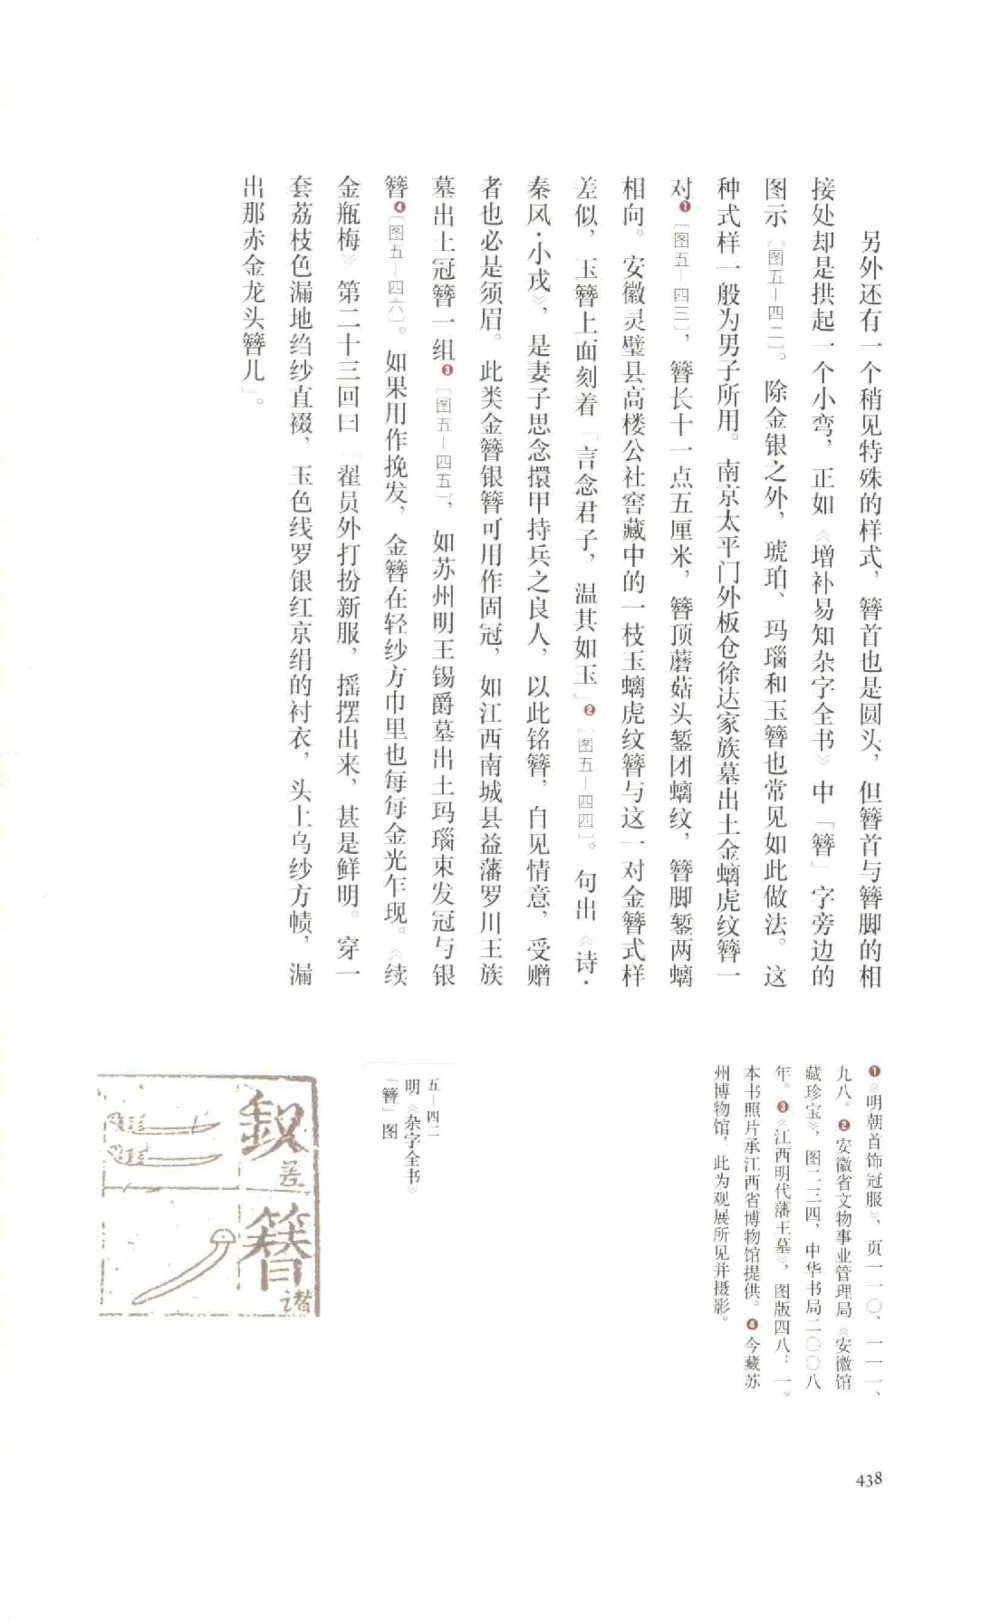 另外还有一个稍见特殊的样式，簪首也是圆头，但簪首与簪脚的相
接处却是拱起一个小弯，正如《增补易知杂字全书》中「簪」字旁边的
图示〔图五－四二〕。除金银之外，琥珀、玛瑙和玉簪也常见如此做法。这
种式样一般为男子所用。南京太平门外板仓徐达家族墓出土金螭虎纹簪一
对❶〔图五－四三〕，簪长十一点五厘米，簪顶蘑菇头錾团螭纹，簪脚錾两螭
相向。安徽灵璧县高楼公社窖藏中的一枝玉螭虎纹簪与这一对金簪式样
差似，玉簪上面刻着「言念君子，温其如玉」❷〔图五－四四〕。句出《诗·
秦风·小戎》，是妻子思念擐甲持兵之良人，以此铭簪，自见情意，受赠
者也必是须眉。此类金簪银簪可用作固冠，如江西南城县益藩罗川王族
墓出土冠簪一组❸〔图五－四五〕，如苏州明王锡爵墓出土玛瑙束发冠与银
簪❹〔图五－四六〕。如果用作挽发，金簪在轻纱方巾里也每每金光乍现。《续
金瓶梅》第二十三回曰「翟员外打扮新服，摇摆出来，甚是鲜明。穿一
套荔枝色漏地绉纱直裰，玉色线罗银红京绢的衬衣，头上乌纱方帻，漏
出那赤金龙头簪儿」。
❶《明朝首饰冠服》，页一一〇、一一一、
九八。❷安徽省文物事业管理局《安徽馆
藏珍宝》，图二三四，中华书局二〇〇八
年。❸《江西明代藩王墓》，图版四八：一。
本书照片承江西省博物馆提供。❹今藏苏
州博物馆，此为观展所见并摄影。
五－四二
明《杂字全书》
「簪」图
釵差
簪谮
438